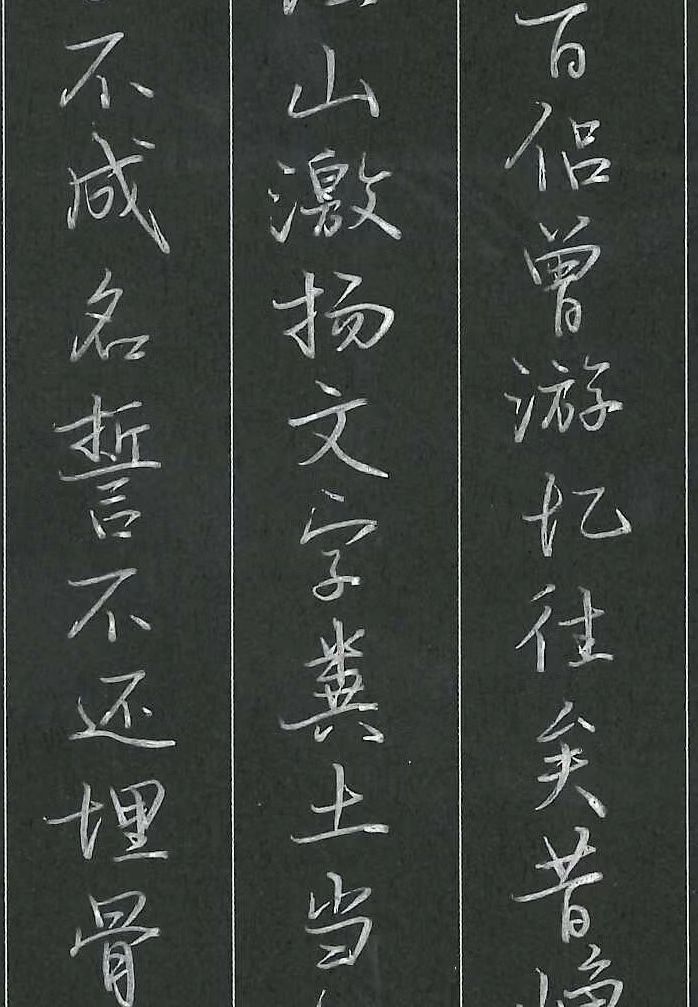 百侣曾游忆往矣昔
山激扬文字粪土当
不成名誓不还埋骨